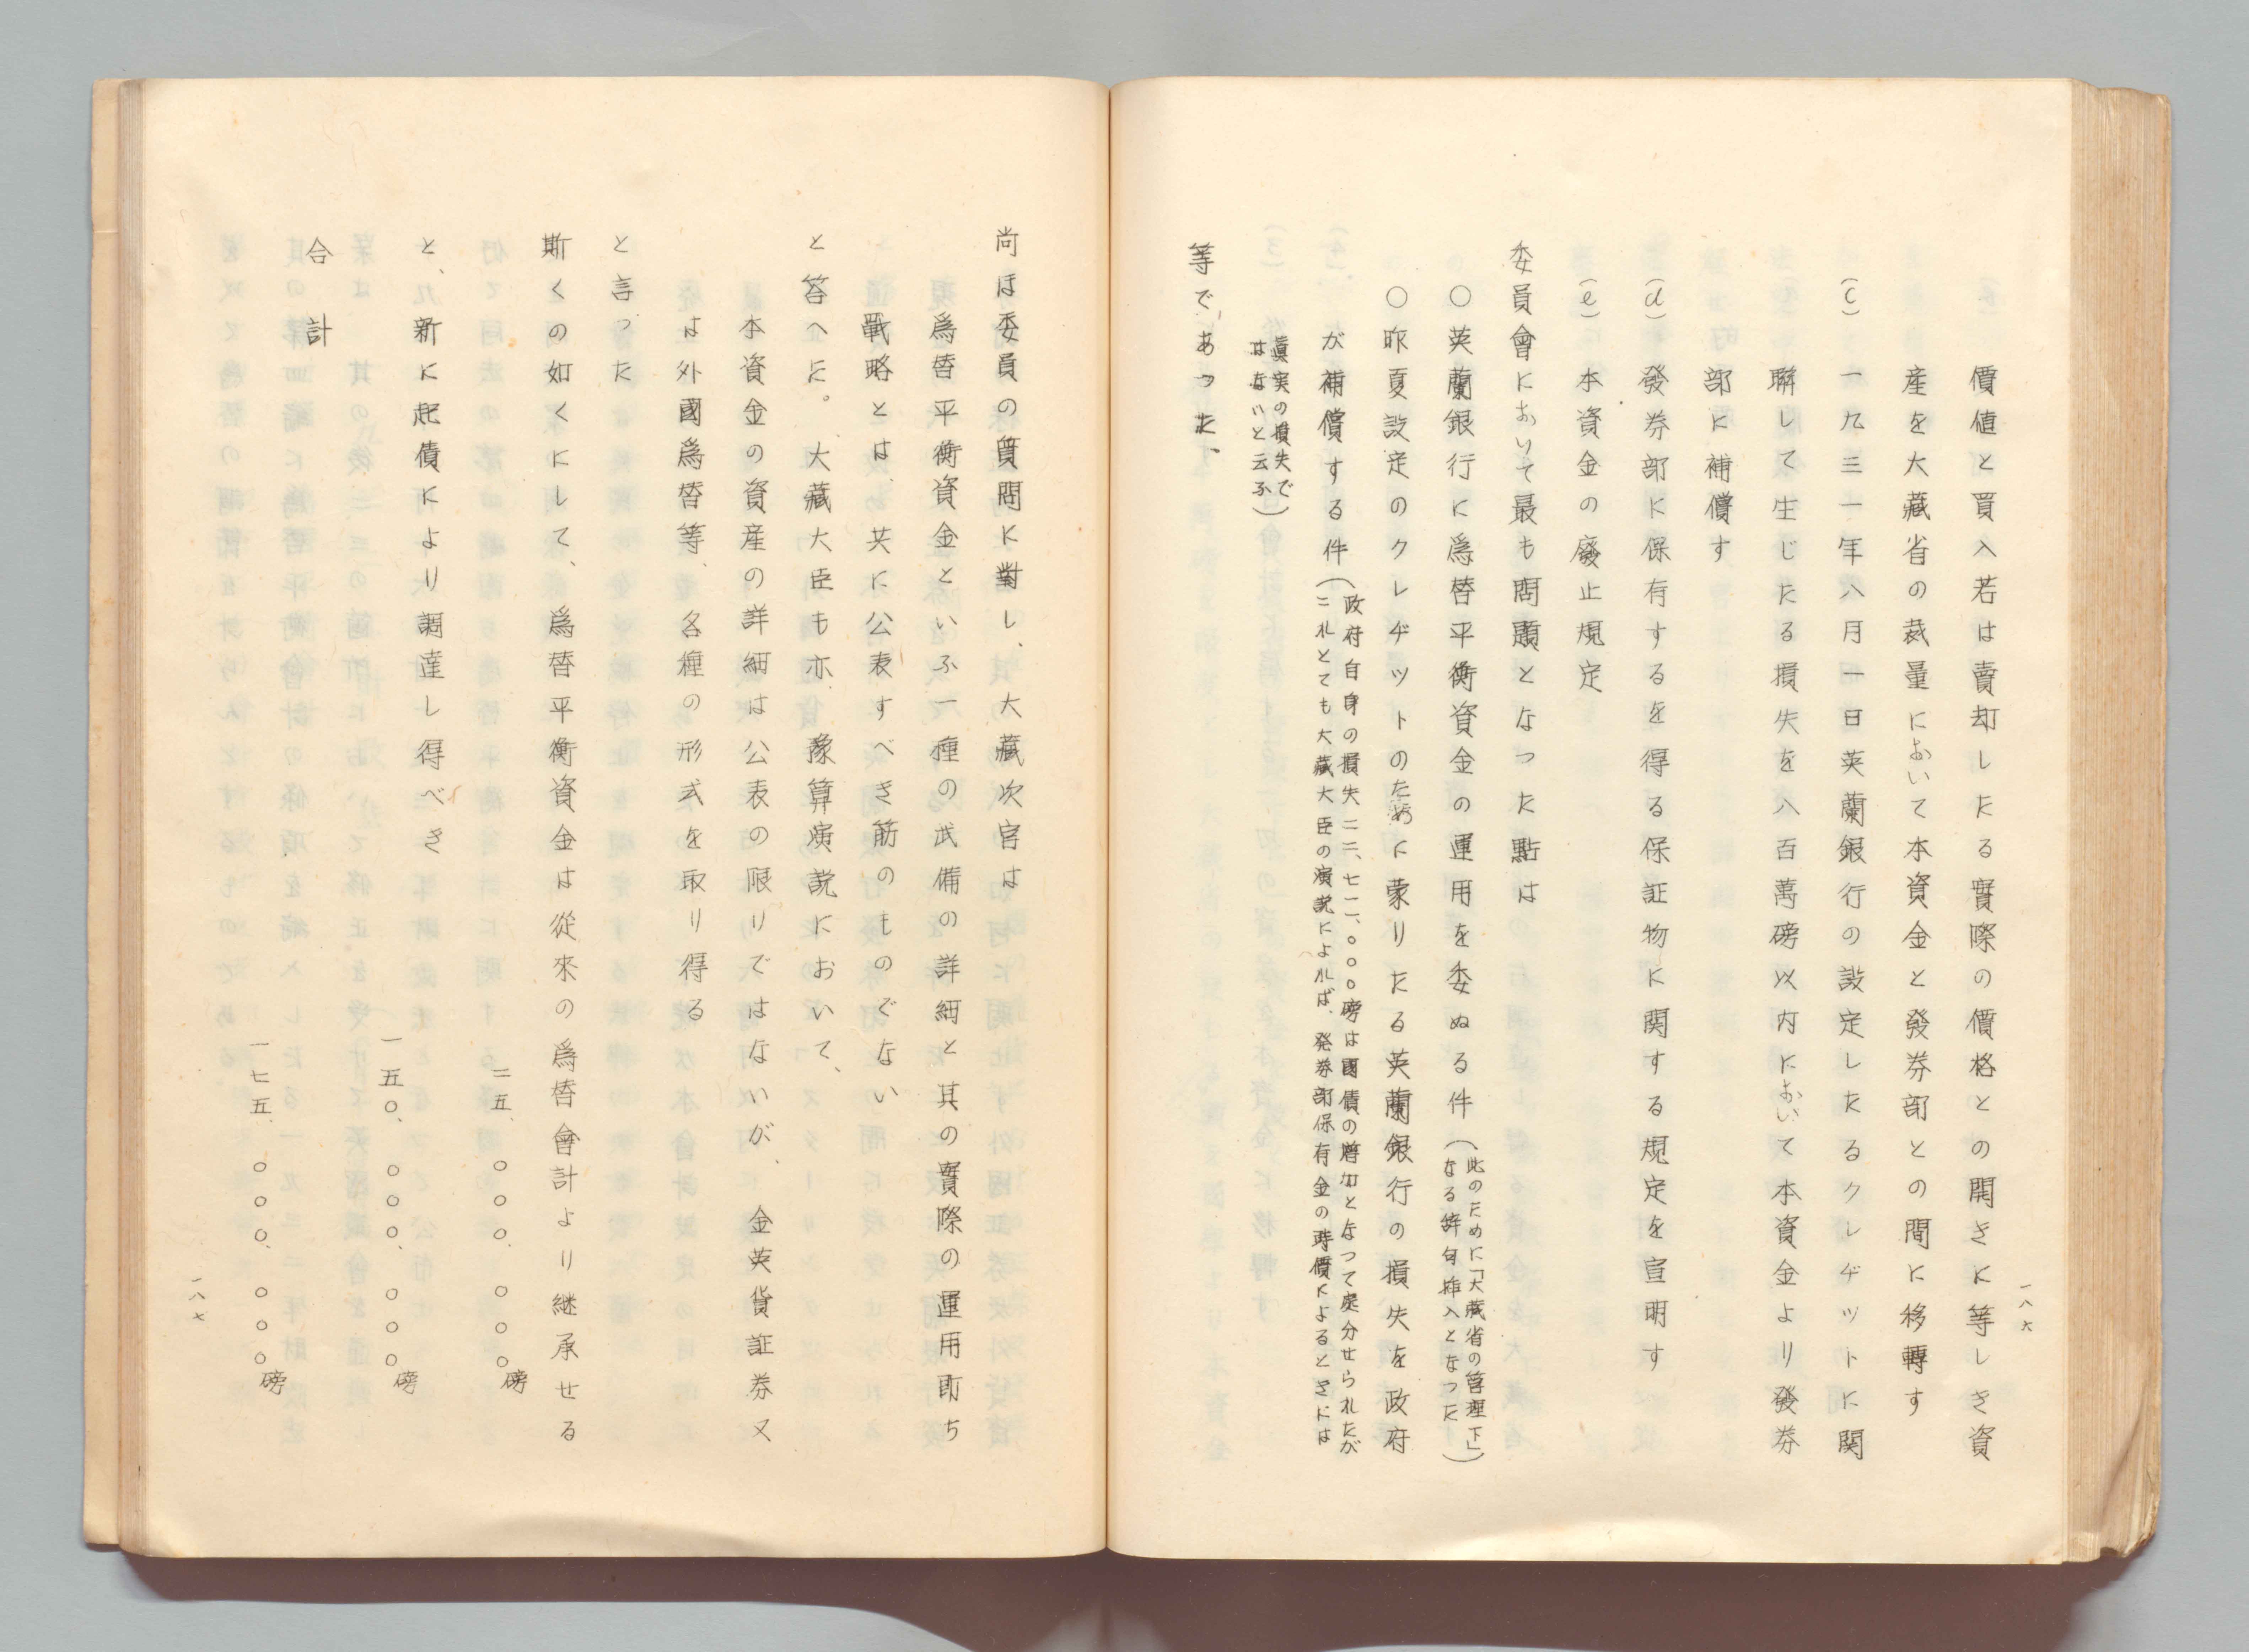 價値と買入若は賣却したる實際の價格との開きに等しき資
産を大藏省の裁量において本資金と發券部との間に移轉す
(c) 一九三一年八月一日英蘭銀行の設定したるクレヂットに関
聯して生じたる損失を八百萬磅以内において本資金より發券
部に補償す
(d) 發券部に保有するを得る保証物に関する規定を宣明す
(e) 本資金の廢止規定
委員會において最も問題となった點は
○英蘭銀行に爲替平衡資金の運用を委ぬる件(此のために「大藏省の管理下」
なる辞句挿入となった)
○昨夏設定のクレヂットのために蒙りたる英蘭銀行の損失を政府
が補償する件(政府自身の損失二三、七一一、〇〇〇磅は國債の増加となつて處分せられたが
これとても大藏大臣の演説によれば、発券部保有金の時價によるときには
眞実の損失で
はないと云ふ)
等であった、
一八六
尚ほ委員の質問に對し、大藏次官は
爲替平衡資金といふ一種の武備の詳細と其の實際の運用即ち
戰略とは、共に公表すべき筋のものでない
と答へた。大藏大臣も亦、豫算演説において、
本資金の資産の詳細は公表の限りではないが、金英貨証券又
は外國爲替等、各種の形式を取り得る
と言った
斯くの如くにして、爲替平衡資金は從來の爲替會計より継承せる
二五、〇〇〇、〇〇〇磅
と、新に起債により調達し得べき
一五〇、〇〇〇、〇〇〇磅
合計
一七五、〇〇〇、〇〇〇磅
一八七